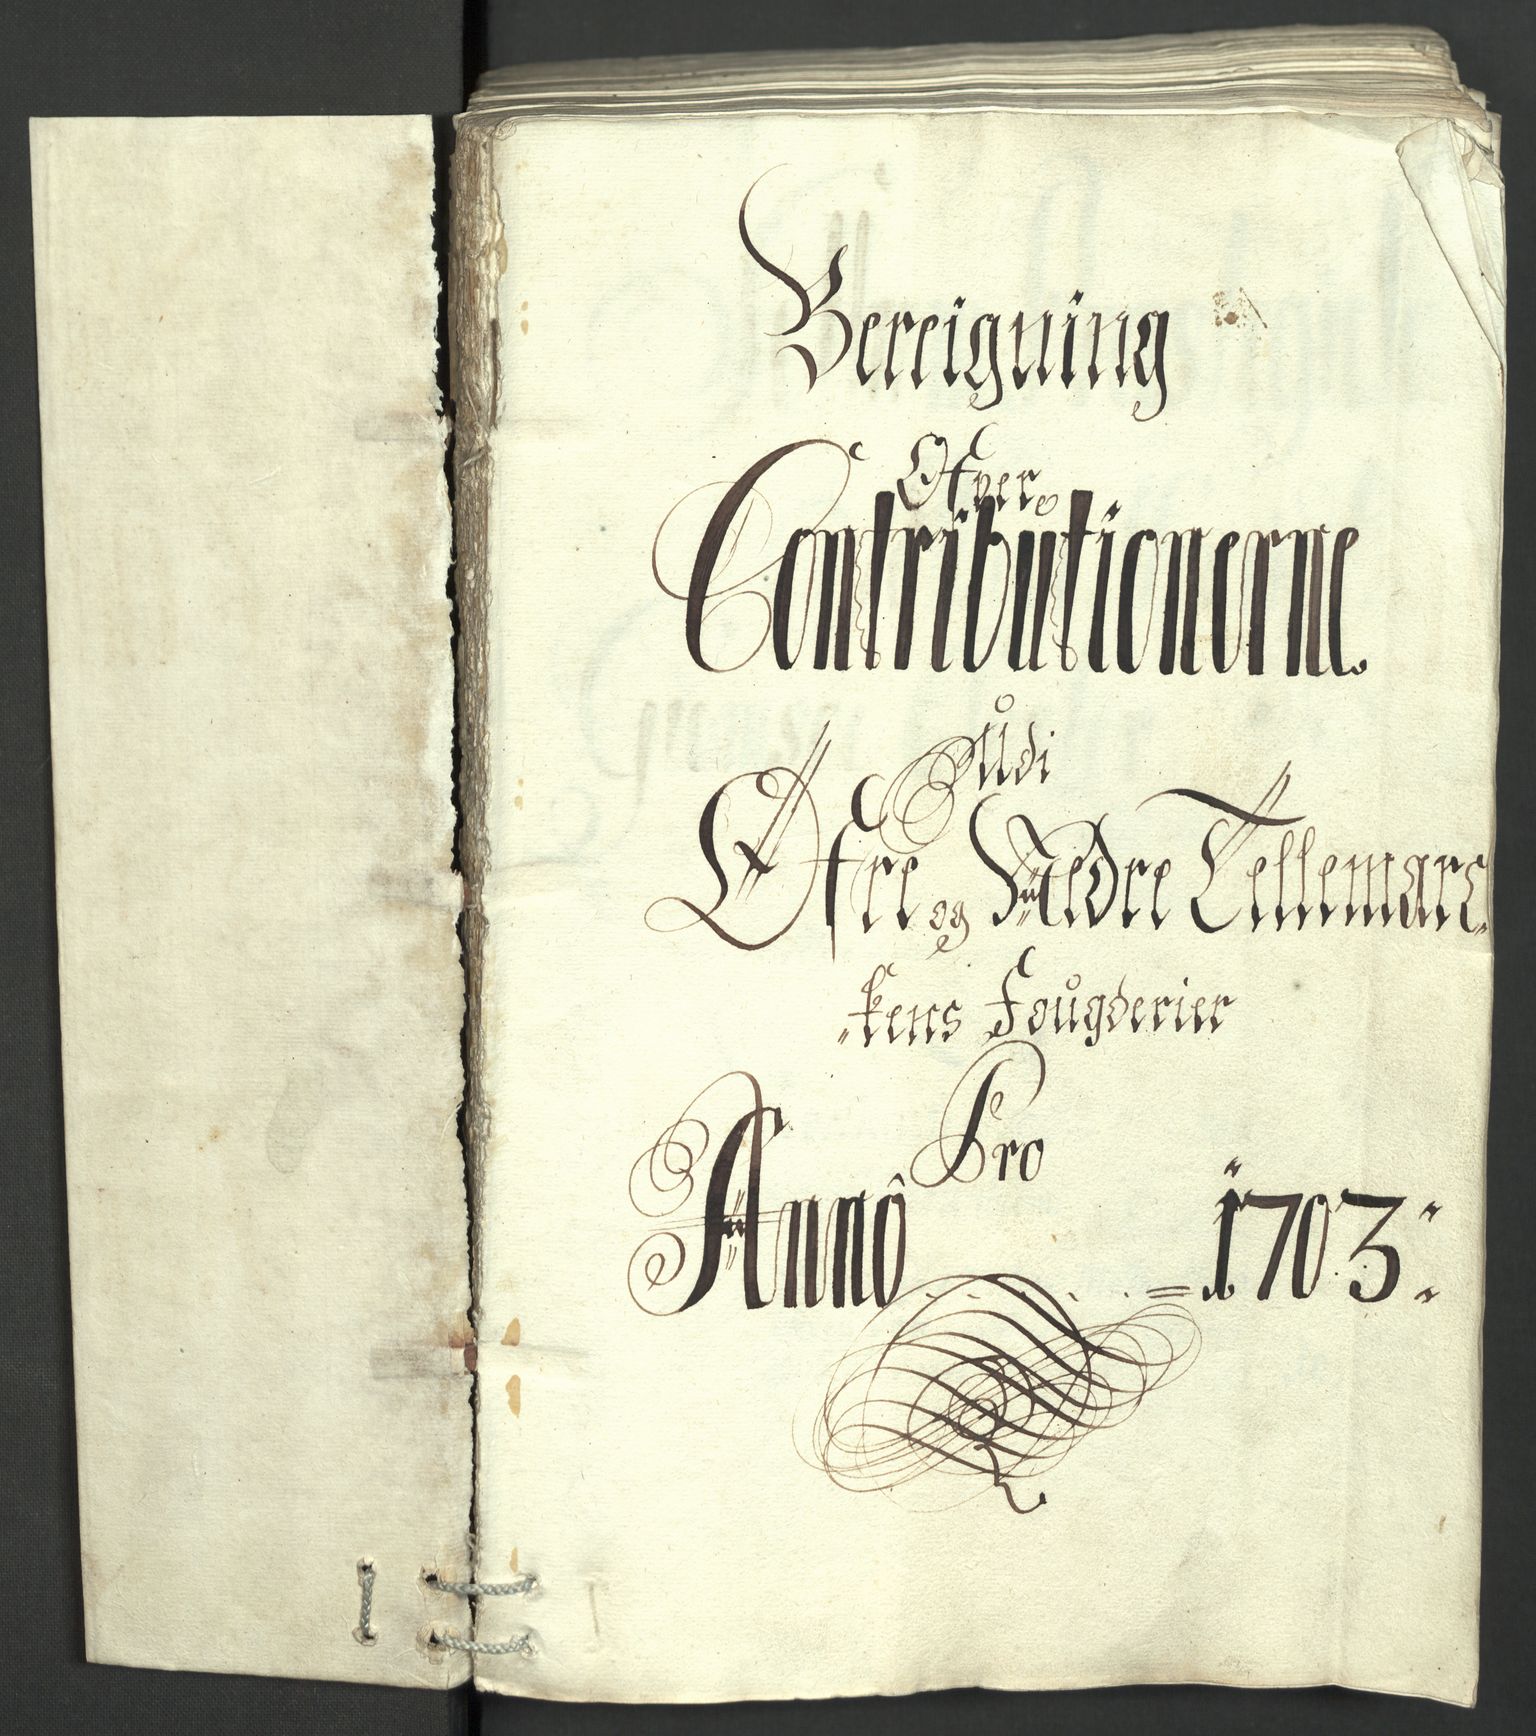 Bereigning
Ofver
Contribůtionerne.
Ůdi
Øfre og Nedre Tellemarc„
„kens Foůgderier
Pro
Annô . . . . . = 1703: